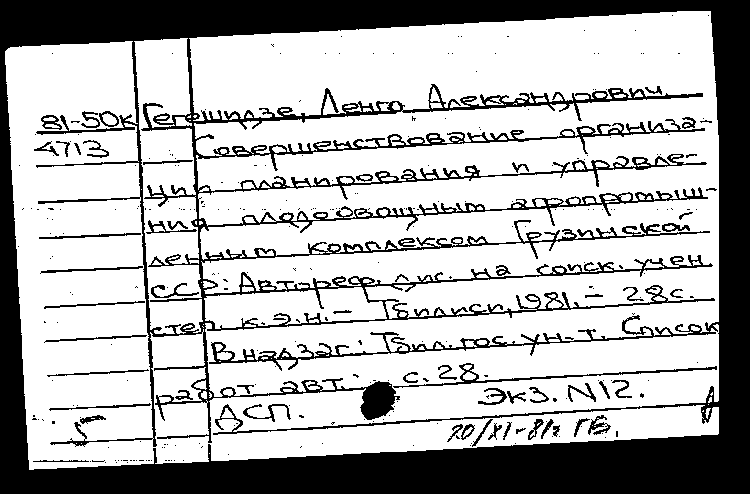 81-50к Гегешидзе, Ленго Александрович.
4713 Совершенствование организа-
ции планирования и управле-
ния плодоовощным агропромыш-
ленным комплексом Грузинской
ССР: Автореф. дис. на соиск. учен.
степ. к.э.н. - Тбилиси, 1981. - 28с.
В надзаг.: Тбил. гос. ун-т. Список
работ авт.: с. 28.
ДСП. Экз. N12.
5 20/XI-81г ГБ.